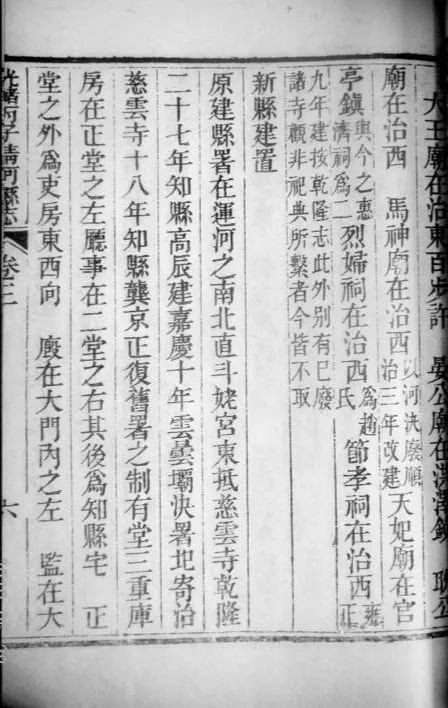 大王廟在治東百步許　晏公廟在
廟在治西　馬神廟在治西以河決廢順治三年改建天妃廟在官
亭鎮與今之惠濟祠爲二烈婦祠在治西爲趙氏　節孝祠在治西雍正
九年建按乾隆志此外別有已廢
諸寺觀非祀典所繫者今皆不取
新縣建置
原建縣署在運河之南北直斗姥宮東抵慈雲寺乾隆
二十七年知縣高辰建嘉慶十年雲曇壩決署圮寄治
慈雲寺十八年知縣龔京正復舊署之制有堂三重庫
房在正堂之左廳事在二堂之右其後爲知縣宅　正
堂之外爲吏房東西向　廏在大門內之左　監在大
光緒丙子清河縣志　卷三　六